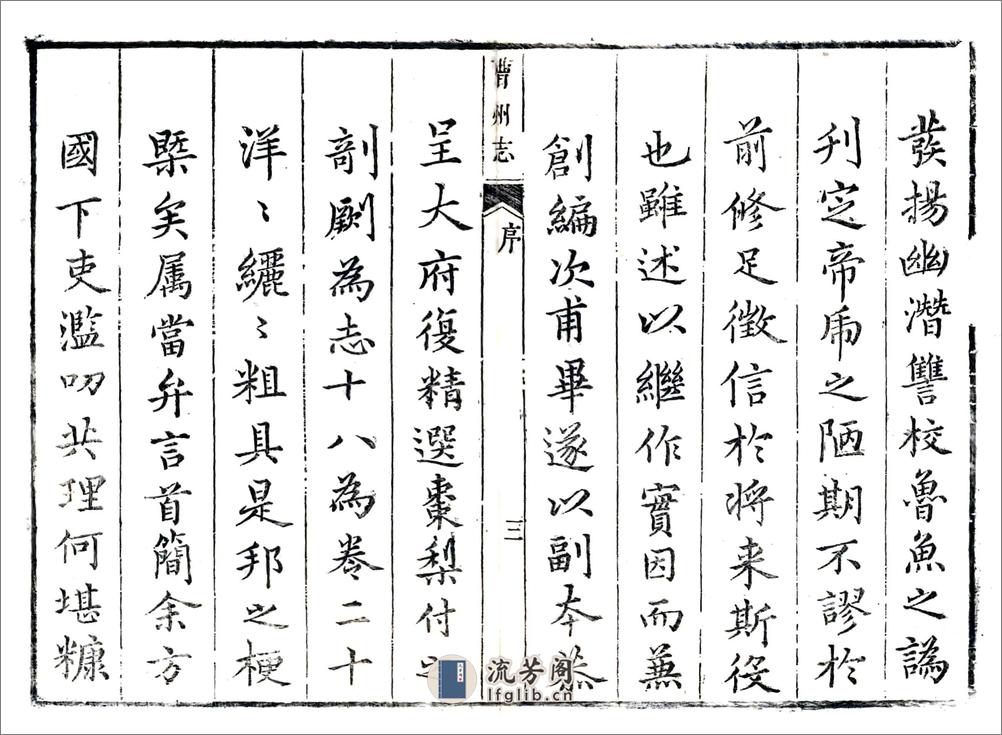 發揚幽潛讐校魯魚之譌
刋定帝乕之陋期不謬於
前修足徵信於將来斯役
也雖述以繼作實因而兼
創編次甫畢遂以副本恭
曹州志 序 三
呈大府復精選棗梨付之
剞劂為志十八為卷二十
洋〻纚〻粗具是邦之梗
槩矣属當弁言首簡余方
國下吏濫叨共理何堪糠
流芳阁
lfglib.cn